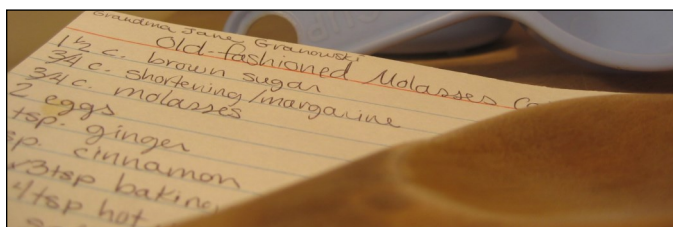 Grandma Jane Granowski
Old-fashioned Molasses Co
1 1/2 c. brown sugar
3/4 c. shortening/margarine
3/4 c. molasses
2 eggs
tsp. ginger
sp. cinnamon
3tsp baking
4tsp hot